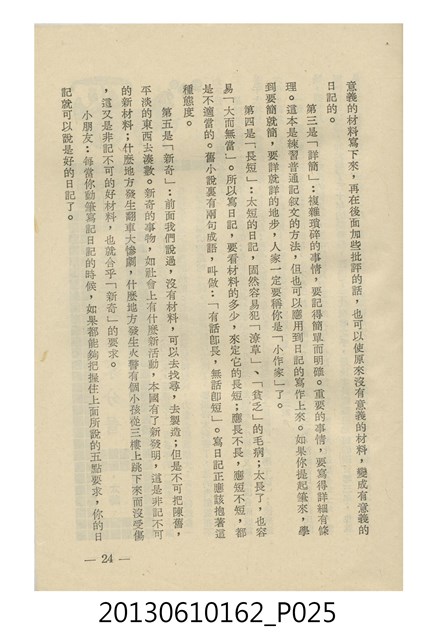 意義的材料寫下來，再在後面加些批評的話，也可以使原來沒有意義的材料，變成有意義的
日記的。
第三是「詳簡」：複雜瑣碎的事情，要記得簡單而明確。重要的事情，要寫得詳細有條
理。這本是練習普通記敘文的方法，但也可以應用到日記的寫作上來。如果你提起筆來，學
到要簡就簡，要詳就詳的地步，人家一定要稱你是「小作家」了。
第四是「長短」：太短的日記，固然容易犯「潦草」、「貧乏」的毛病；太長了，也容
易「大而無當」。所以寫日記，要看材料的多少，來定它的長短；應長不長，應短不短，都
是不適當的。舊小說裏有兩句成語，叫做：「有話卽長，無話卽短」。寫日記正應該抱著這
種態度。
第五是「新奇」：前面我們說過，沒有材料，可以去找尋，去製造；但是不可把陳舊，
平淡的東西去湊數。新奇的事物，如社會上有什麼新活動，本國有了新發明，這是非記不可
的新材料；什麼地方發生翻車大慘劇，什麼地方發生火警有個小孩從三樓上跳下來而沒受傷
，這又是非記不可的好材料，也就合乎「新奇」的要求。
小朋友：每當你動筆寫記日記的時候，如果都能夠把握住上面所說的五點要求，你的日
記就可以說是好的日記了。
— 24 —
20130610162_P025